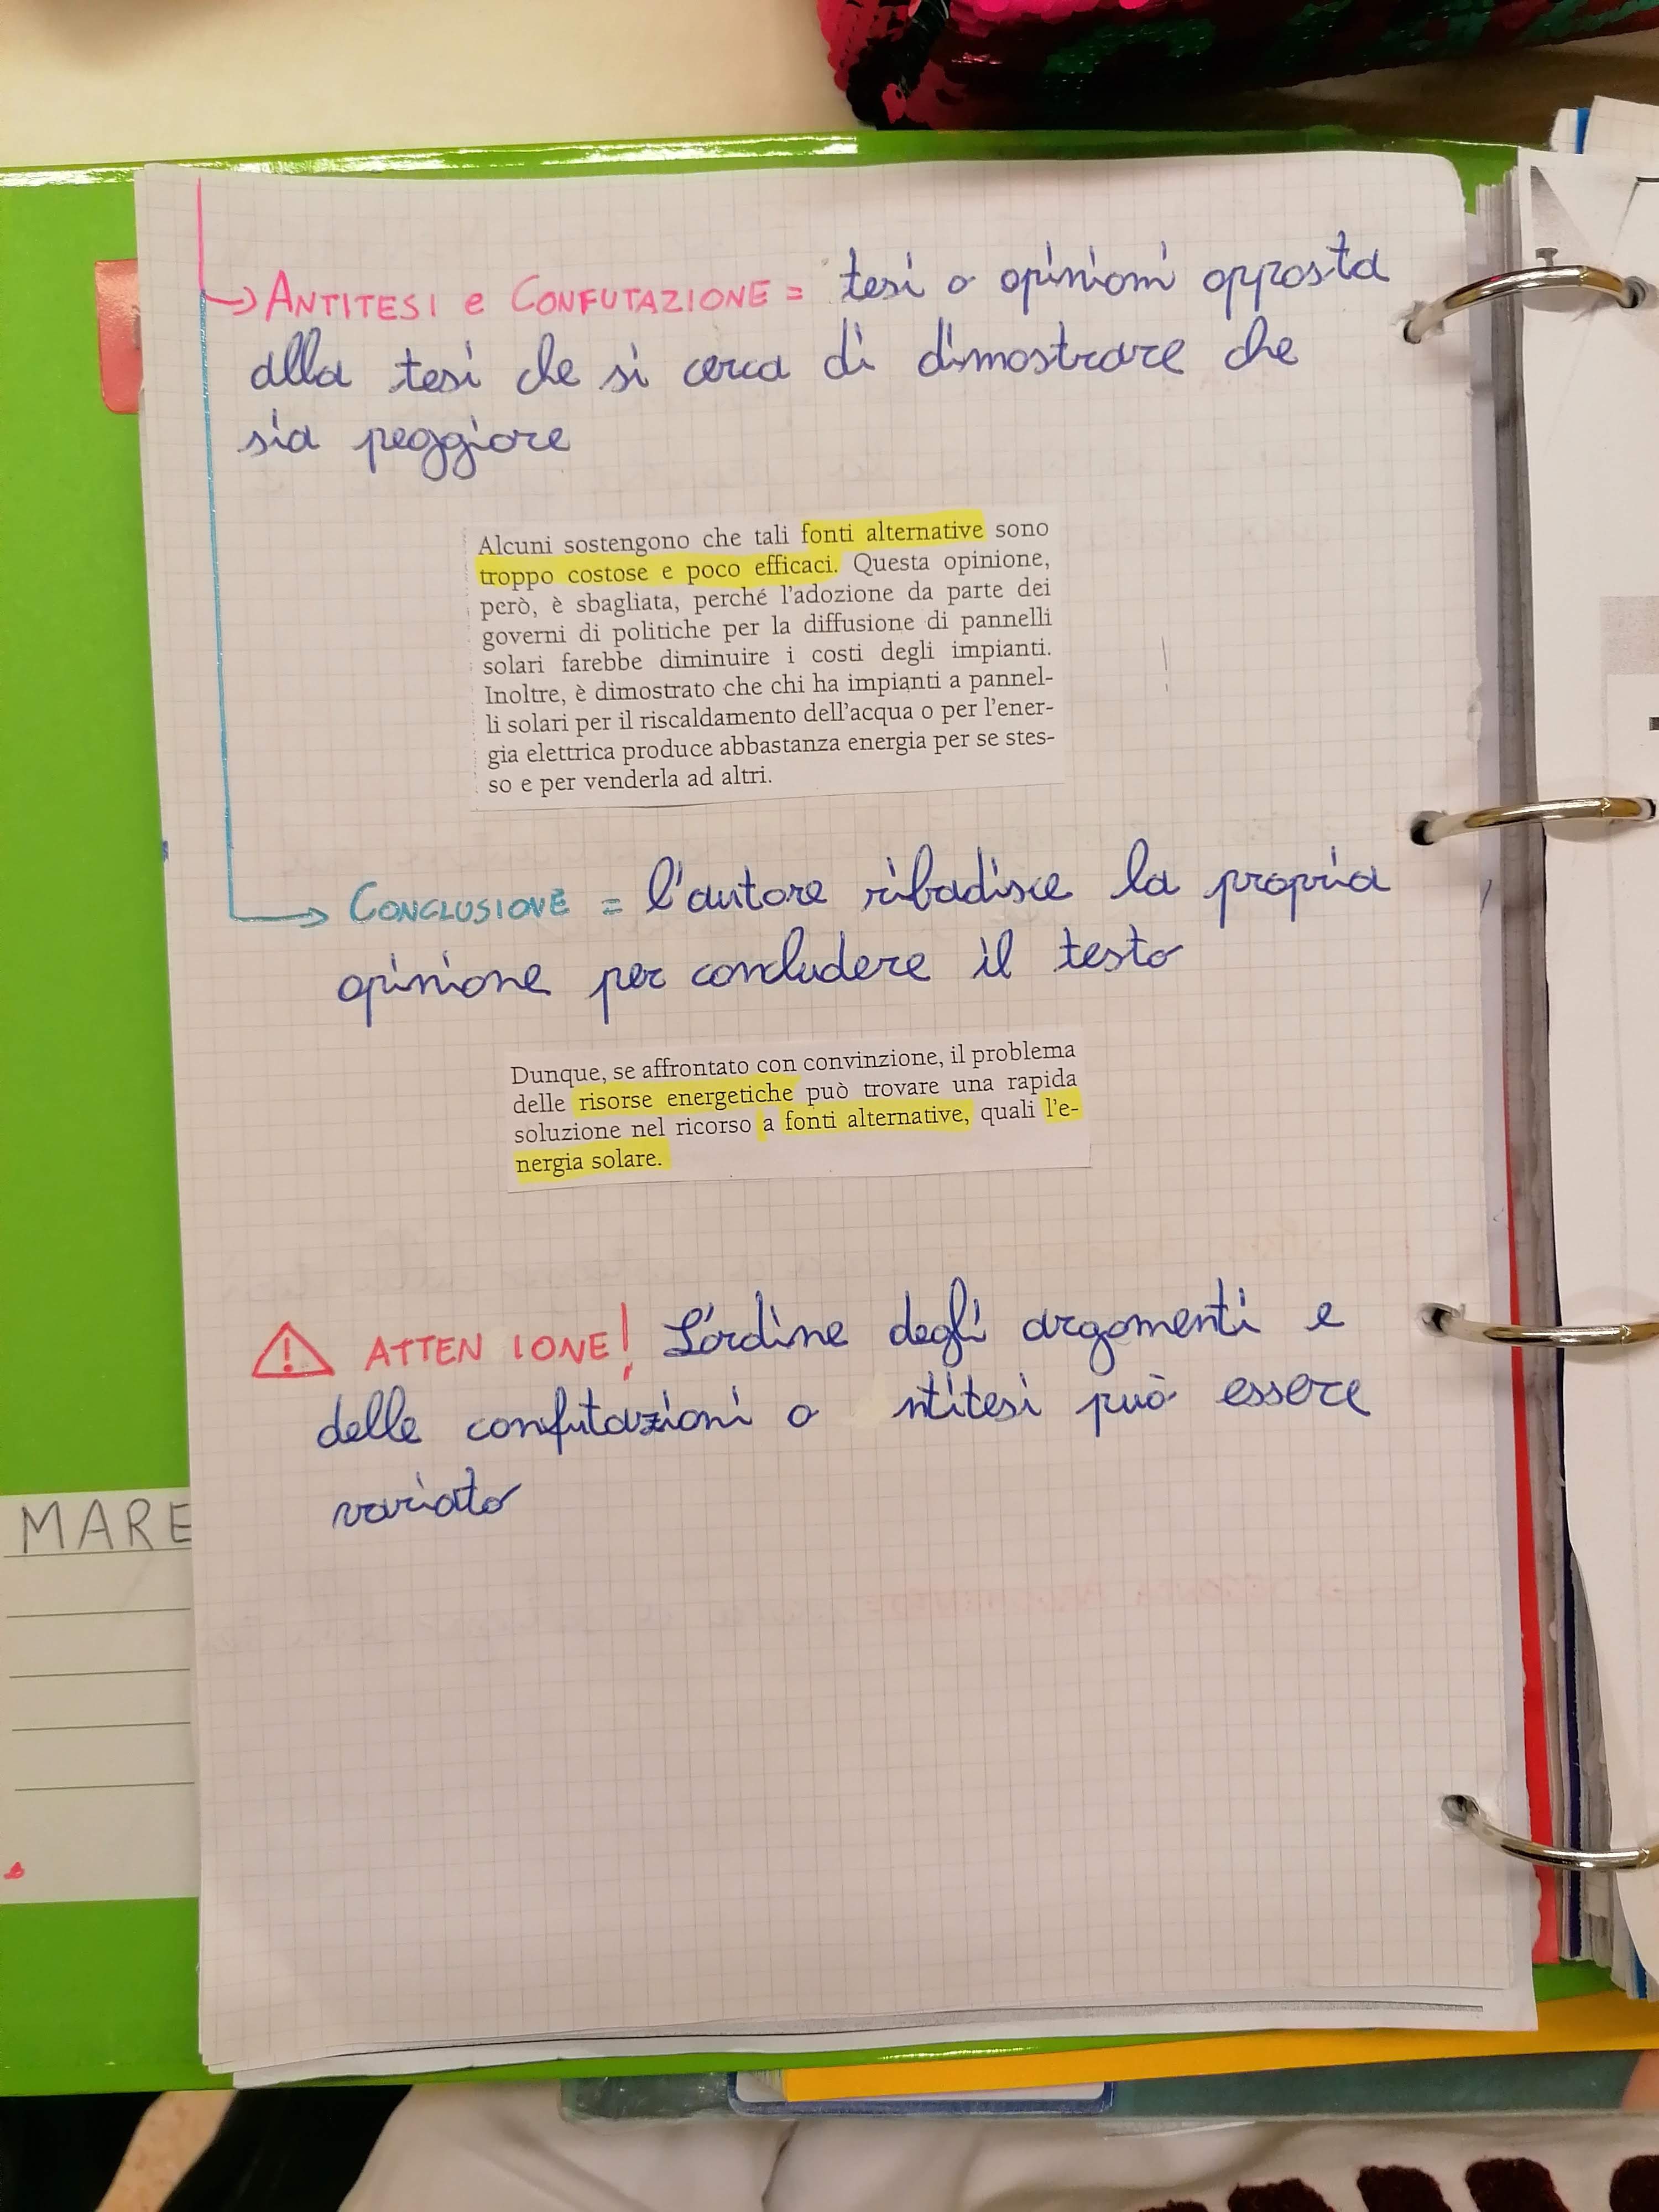 → ANTITESI e CONFUTAZIONE = tesi o opinioni opposta
alla tesi che si cerca di dimostrare che
sia peggiore
Alcuni sostengono che tali fonti alternative sono
troppo costose e poco efficaci. Questa opinione,
però, è sbagliata, perché l'adozione da parte dei
governi di politiche per la diffusione di pannelli
solari farebbe diminuire i costi degli impianti.
Inoltre, è dimostrato che chi ha impianti a pannel-
li solari per il riscaldamento dell'acqua o per l'ener-
gia elettrica produce abbastanza energia per se stes-
so e per venderla ad altri.
→ CONCLUSIONE = l'autore ribadisce la propria
opinione per concludere il testo
Dunque, se affrontato con convinzione, il problema
delle risorse energetiche può trovare una rapida
soluzione nel ricorso a fonti alternative, quali l'e-
nergia solare.
! ATTEN IONE! L'ordine degli argomenti e
delle confutazioni o ntitesi può essere
variato
MARE